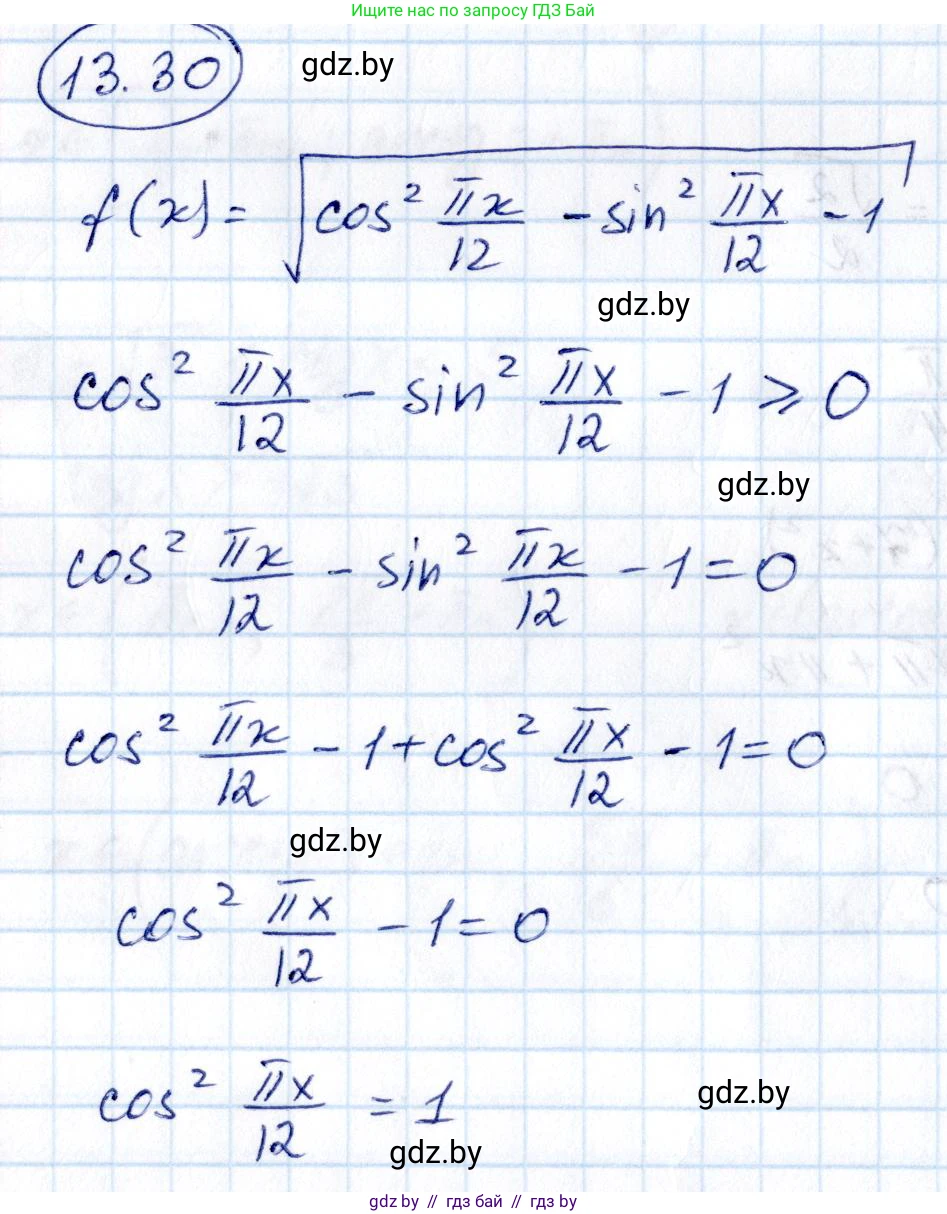 Ищите нас по запросу ГДЗ Бай
13.30 gdz.by
f(x) = √(cos² πx/12 - sin² πx/12 - 1)
gdz.by
cos² πx/12 - sin² πx/12 - 1 ⩾ 0
gdz.by
cos² πx/12 - sin² πx/12 - 1 = 0
cos² πx/12 - 1 + cos² πx/12 - 1 = 0
gdz.by
cos² πx/12 - 1 = 0
cos² πx/12 = 1
gdz.by
gdz.by
gdz.by // гдз бай // гдз by